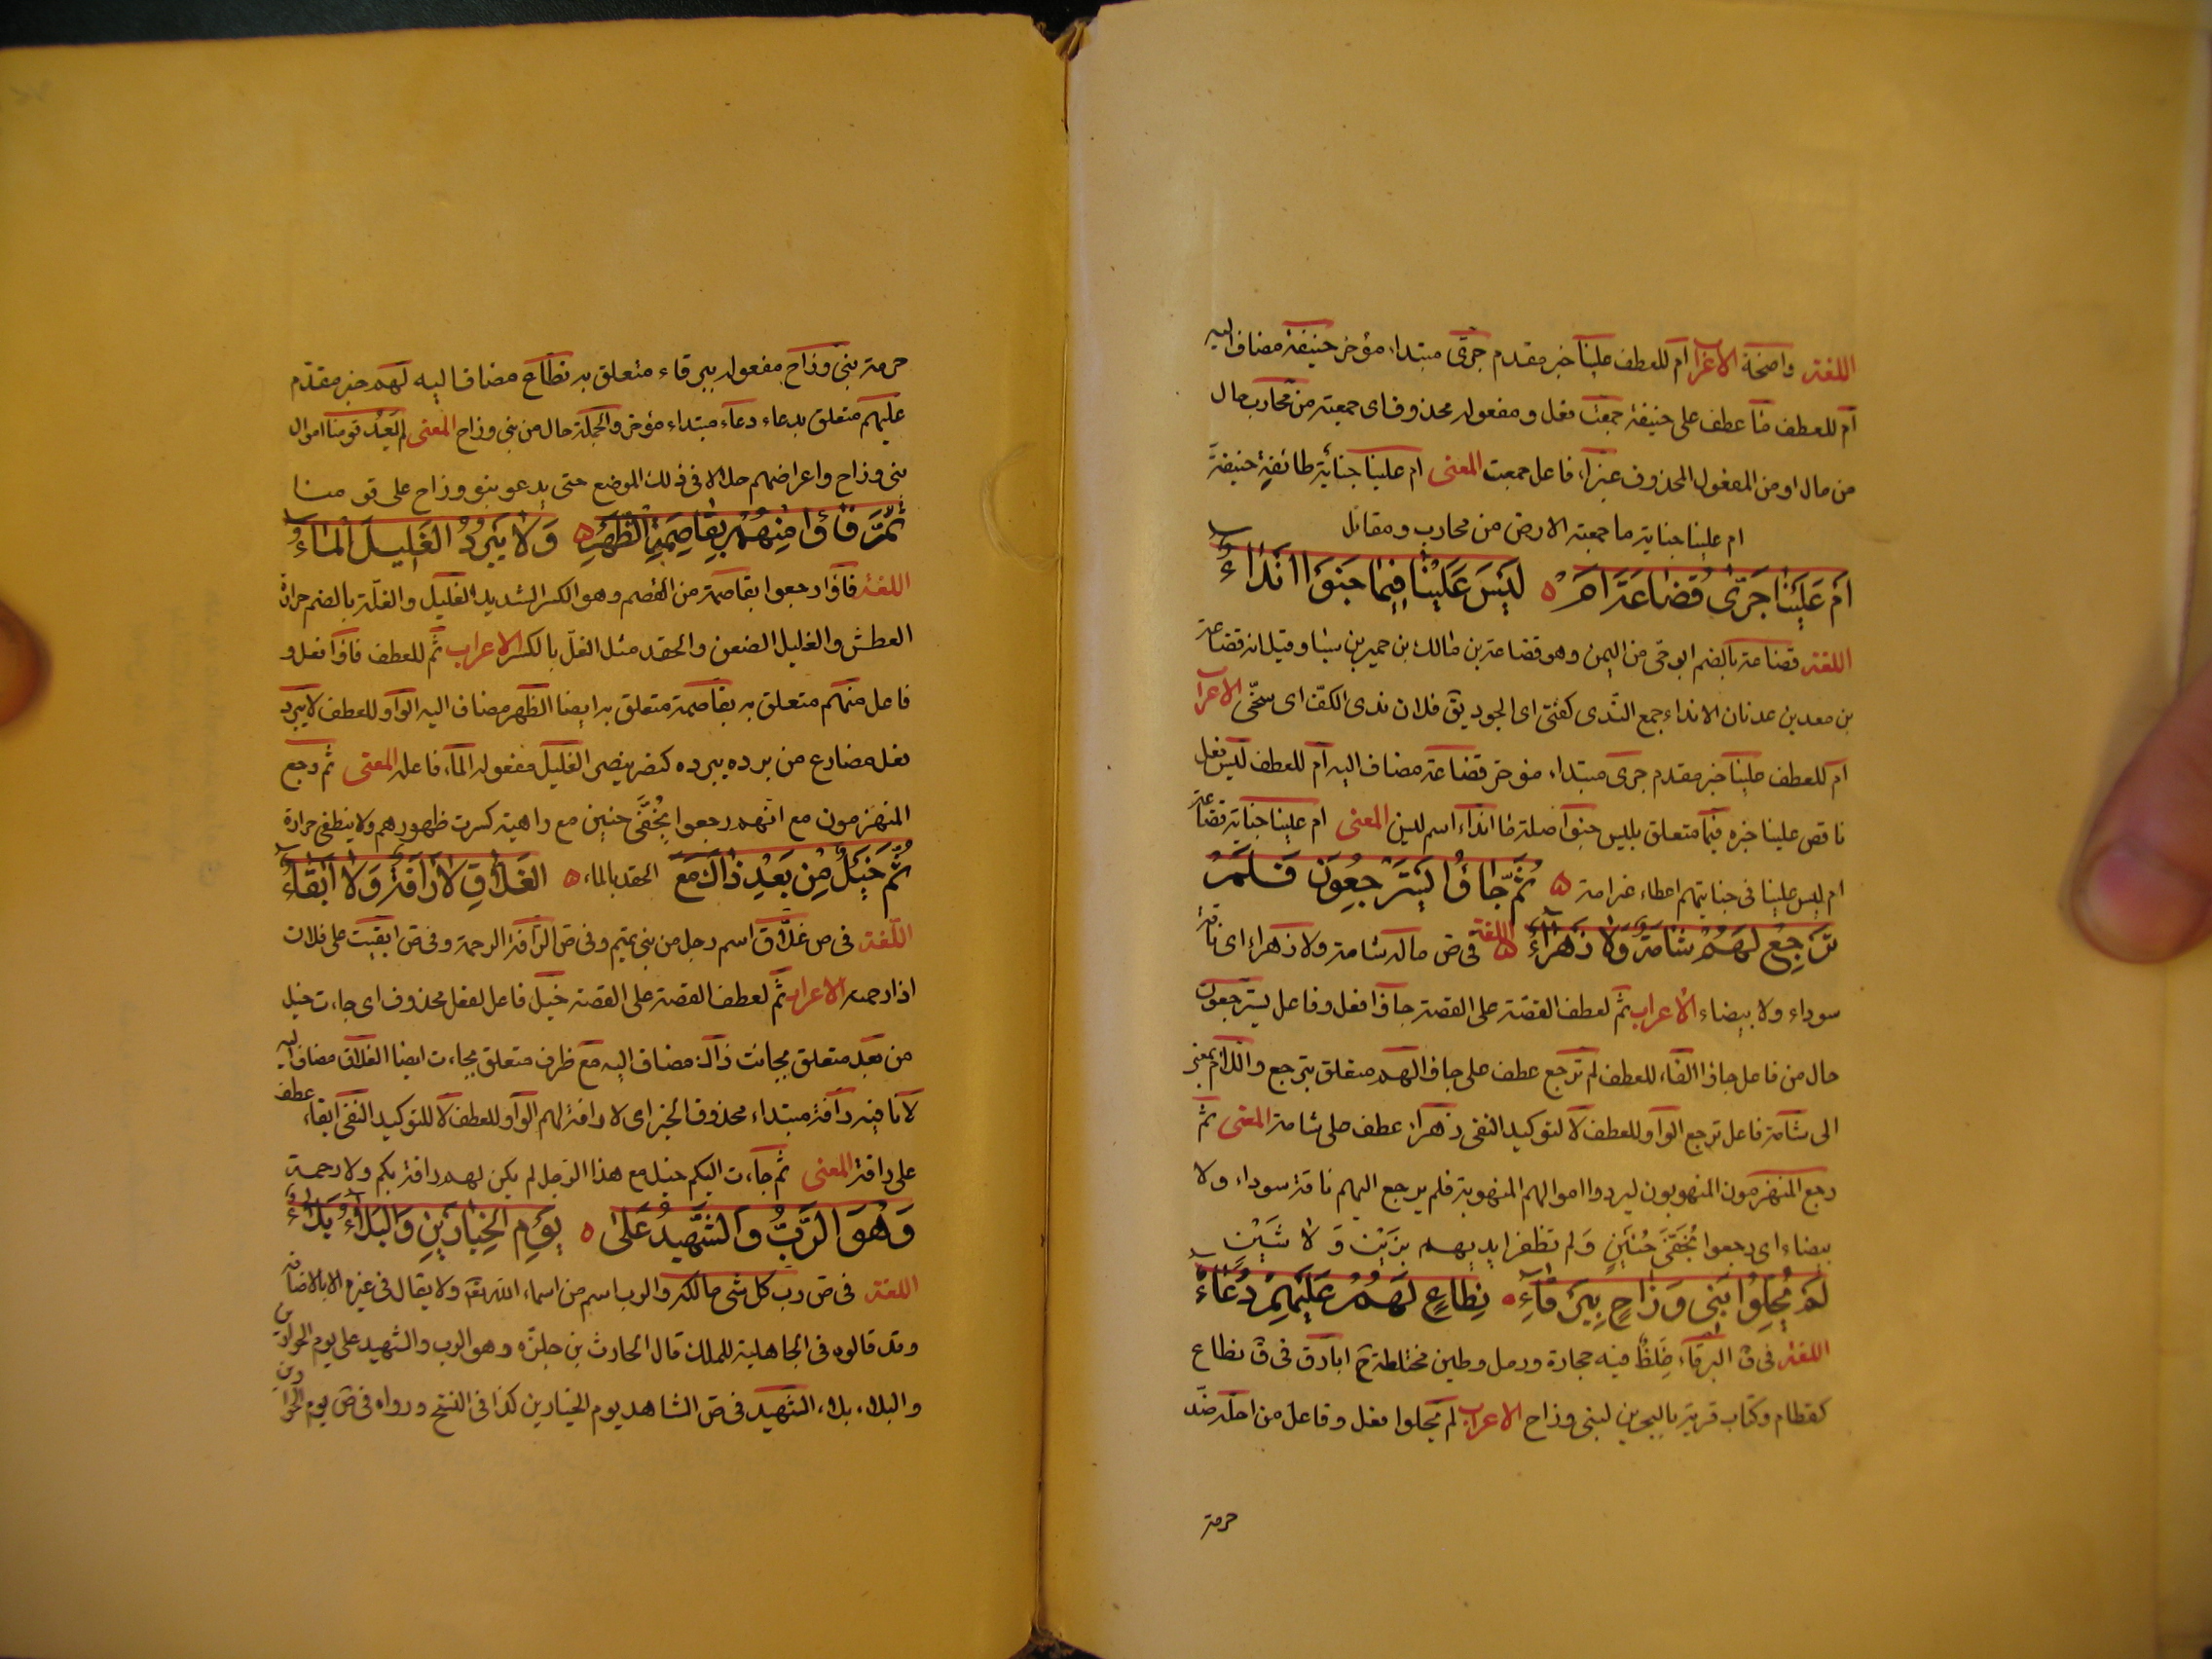 اللغة واضحة الاعراب ام للعطف علينا خبر مقدم جرّى مبتداء مؤخر حنيفة مضاف اليه
ام للعطف ما عطف على حنيفة جمعت فعل ومفعوله محذوف اى جمعته من محارب حال
من ما او من المفعول المحذوف غبراء فاعل جمعت المعنى ام علينا جناية طائفة حنيفة
ام علينا جناية ما جمعته الارض من محارب ومقاتل
اَمْ عَلَيْنَا جَرّٰى قُضَاعَةَ اَمْ ٥ لَيْسَ عَلَيْنَا فِيمَا جَنَوْا اَنْدَاءُ
اللغة قضاعة بالضم ابو حى من اليمن وهو قضاعة بن مالك بن حمير بن سبا وقيل انه قضاعة
بن معد بن عدنان الانداء جمع النّدى كفتى اى الجود يق فلان ندى الكفّ اى سخّى الاعراب
ام للعطف علينا خبر مقدم جرى مبتداء مؤخر قضاعة مضاف اليه ام للعطف ليس فعل
ناقص علينا خبره فيما متعلق بليس جنوا صلة ما انداء اسم ليس المعنى ام علينا جناية قضاعة
ام ليس علينا فى جنايتهم اعطاء غرامة ٥ ثُمَّ جَاؤُا يَسْتَرْجِعُونَ فَلَمْ
تَرْجِعْ لَهُمْ شَامَةٌ وَلَا زَهْرَاءُ ٥ اللغة فى ص ماله شامة ولا زهراء اى ناقة
سوداء ولا بيضاء الاعراب ثمّ لعطف القصّة على القصة جاؤا فعل وفاعل يسترجعون
حال من فاعل جاؤا الفاء للعطف لم ترجع عطف على جاؤا لهم متعلق بترجع واللام بمعنى
الى شامة فاعل ترجع الواو للعطف لا لتوكيد النفى زهراء عطف على شامة المعنى ثمّ
رجع المنهزمون المنهوبون ليردوا اموالهم المنهوبة فلم يرجع اليهم ناقة سوداء ولا
بيضاء اى رجعوا بخُفَّىْ حُنَيْنٍ وَلم تظفر ايديهم بزَيْنٍ وَلا شَيْنٍ
لَمْ يُحِلُّوا بَنِى رَزَاحٍ بِبَرْقَاءِ ٥ نِطَاعٍ لَهُمْ عَلَيْهِمْ دُعَاءُ
اللغة فى ق البرقاء غِلَظٌ فيه حجارة ورمل وطين مختلطة ج ابارق فى ق نطاع
كقطام وكتاب قرية بالبحرين لبنى رزاح الاعراب لم يحلوا فعل وفاعل من احلّه ضدّ
حرمة
حرمة بنى رزاح مفعوله ببرقاء متعلق به نطاع مضاف اليه لهم خبر مقدّم
عليهم متعلق بدعاء دعاء مبتداء مؤخر والجملة حال من بنى رزاح المعنى لم يَعُد قومنا اموال
بنى رزاح واعراضهم حلالا فى ذلك الموضع حتى يدعو بنو رزاح على قومنا
ثُمَّ فَاؤُا مِنْهُمْ بِقَاصِمَةِ الظَّهْرِ ٥ وَلَا يَبْرُدُ الْغَلِيلَ الْمَاءُ
اللغة فاؤا رجعوا بقاصمة من القصم وهو الكسر الشديد الغليل والغلّة بالضم حرارة
العطش والغليل الضغن والحقد مثل الغلّ بالكسر الاعراب ثمّ للعطف فاؤا فعل و
فاعل منهم متعلق به بقاصمة متعلق به ايضا الظهر مضاف اليه الواو للعطف لا يبرد
فعل مضارع من برده يبرده كنصر ينصر الغليل مفعوله الماء فاعله المعنى ثم رجع
المنهزمون مع انهم رجعوا بخُفَّىْ حنين مع داهية كسرت ظهورهم ولا ينطفى حرارة
الحقد بالماء ٥ ثُمَّ خَيْلٌ مِنْ بَعْدِ ذَاكَ مَعَ الْغَلَّاقِ لَا رَأْفَةٌ وَلَا اِبْقَاءُ
اللغة فى ص غلّاق اسم رجل من بنى تميم وفى ص الرّأفة الرحمة وفى ص ابقيت على فلان
اذا رحمته الاعراب ثمّ لعطف القصة على القصة خيل فاعل لفعل محذوف اى جاءت خيل
من بعد متعلق بجائت ذاك مضاف اليه مع ظرف متعلق بجاءت ايضا الغلاق مضاف اليه
لا نافية رأفة مبتداء محذوف الخبر اى لا رافة لهم الواو للعطف لا للتوكيد النفى ابقاء عطف
على رافة المعنى ثم جاءت اليكم خيل مع هذا الرجل لم يكن لهم رافة بكم ولا رحمة
وَهُوَ الرَّبُّ وَالشَّهِيدُ عَلٰى ٥ يَوْمِ الْخِيَارَيْنِ وَالْبَلَاءُ بَلَاءُ
اللغة فى ص رب كل شى مالكه والرب اسم من اسماء الله تع ولا يقال فى غيره الا بالاضافة
وقد قالوه فى الجاهلية للملك قال الحارث بن حلزّه وهو الرب والشهيد على يوم الحوارين
والبلاء بلاء الشهيد فى ص الشاهد يوم الخيارين كذا فى النسخ ورواه فى ص يوم الحوارين